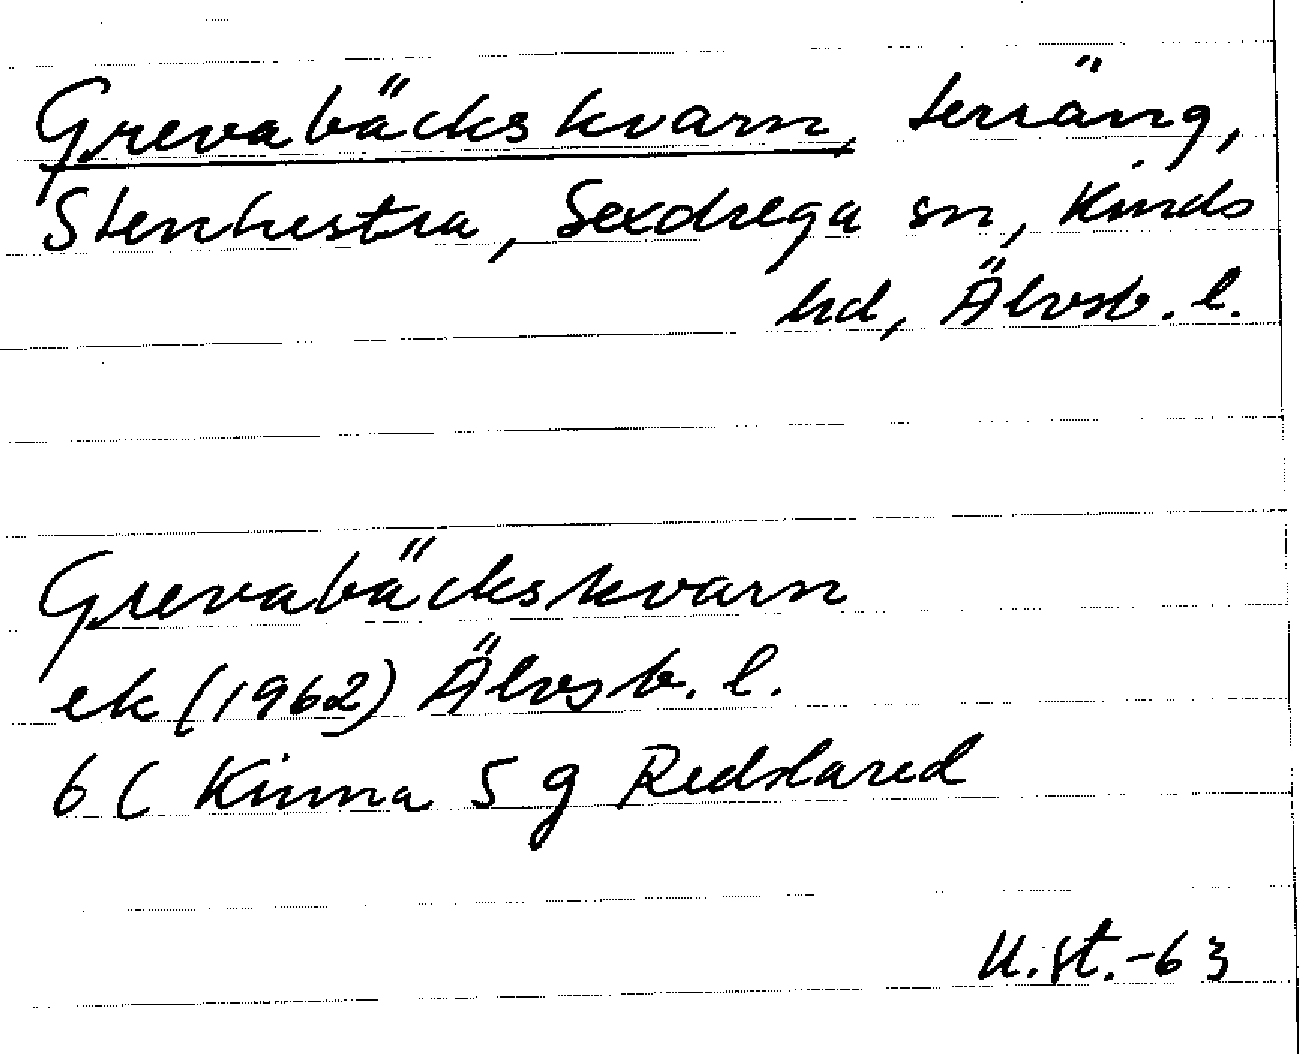 Grevabäckskvarn, terräng,
Stenhestra, Sexdrega sn, Kinds
hd, Älvsb. l.
Grevabäckskvarn
ek (1962) Älvsb. l.
6 C Kinna 5 g Redslared
U.St.-63